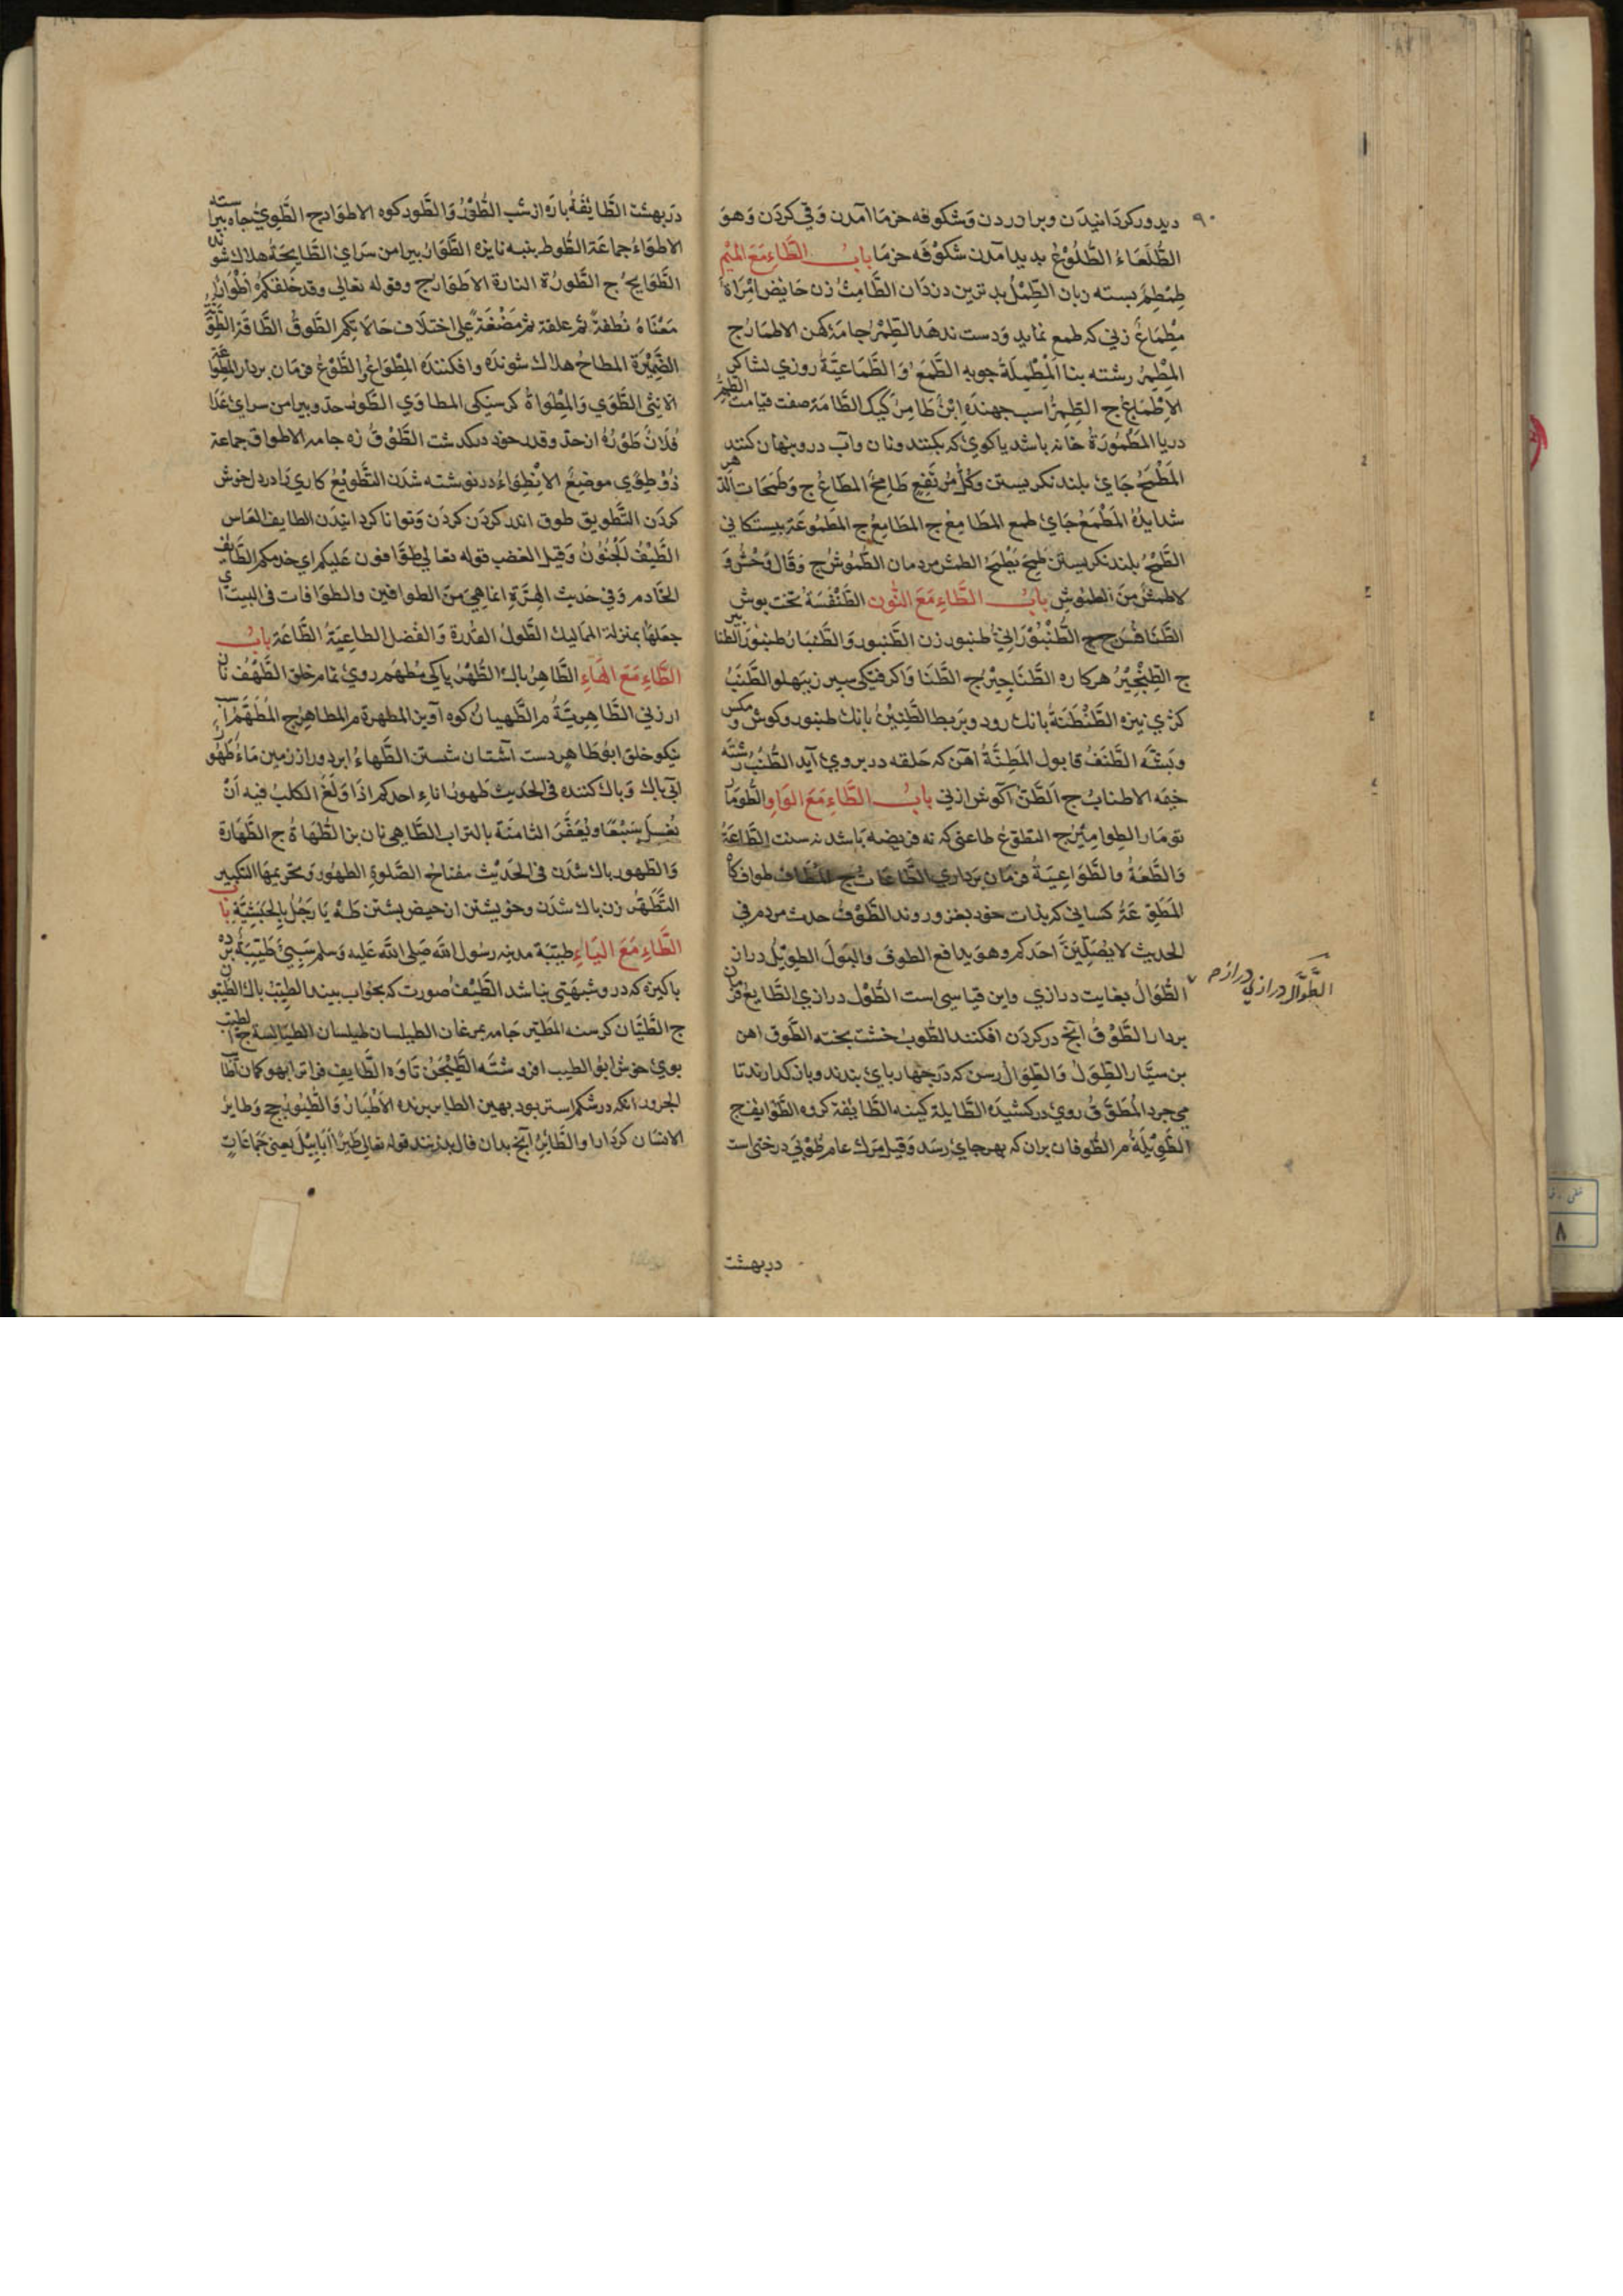 ۹۰
دیدور کردانیدن و برا وردن و شکوفه خرما آمدن و قی کردن وهو
الطُّلَعَاءُ الطُّلُوْعُ بدید آمدن شکوفه خرما بابُ الطَّاءِ مَعَ المْیْمِ
طِمْطِمُ بسته زبان الطِّمْلُ بدترین دزدان الطَّامِثُ زن حایض اِمْرَاة
مِطْمَاعٌ زنی که طمع نماید و دست ندهد الطِمْرُ جامهٔ کهن الاطمارُ ج
المِطْمَرُ رشته بنا
الاِطْمَاعُ ج الطِمِرُّ اسب جهنده اِبْنُ طَامِرٍ کیک الطَّامَة صفت قیامت الطِّمُّ
دریا المَطْمُورَةُ خانه باشد یا کوی که بکنند ونان وآب درو پنهان کنند
المَطْمَحُ جَای بلند نکریستن وکُلُّ مُرْتَفِعٍ طَامِحُ المطَامِعُ ج وَطَمَحَات الدَّهر
شدایدُهُ المَطْمَعُ جَای طمع المَطَامِعُ ج
الطَّمْحُ بلند نکریستن طَمَحَ یَطْمَحُ الطمش مردمان الطُّمُوشُ ج وَقَالَ وَحْشٌ وَ
لاطمشٌ مِنَ الطمُوشِ بابُ الطَّاءِ مَعَ النُّون الطَّنْفَسَةُ تخت پوش
الطَّنَافِسُ ج الطُّنْبُوْرَانِیُّ طنبور زن الطُّنبور وَالطِّنْبَارُ طنبُوْر الطنابیر
ج الطِّنْجِیْرُ هرکاره الطَّنَاجِیْرُ ج الطَّنَا وَاکرفتکی سپرز بپهلو الطَّنَبُ
کژی نیزه الطَّنْطَنَةُ بانك رود و بربط الطَّنِیْنُ بانك طنبور وکوش و مکس
وپشه الطَّنَفُ قابول المَطِنَّةُ آهن که حلقه در بروی آید الطُّنُبُ رشته
خیمه الاطنابُ ج الطَّنُّ آغوش ازنی بابُ الطَّاءِ مَعَ الوَاوِ الطُّومَا
تومار الطِوامِیْرُ ج التطَوُّعُ طاعتی که نه فریضه باشد نه سنت الطَّاعَةُ
وَالطَّعَةُ والطَّوَاعِیَةُ فرمان برداری الطَّاعَاتُ ج المَطَافُ طواف کا
المَطَوِّعَةُ کسانی که بذات خود بغزو روند الطَّوْفُ حدث مردم فی
الحدیث لا یُصَلِّیَنَّ احدکم وهو یدافع الطوف والبَولَ الطویْلُ دراز
الطُّوَالُ بغایت درازی واین قیاسی است الطُّوْلُ درازی الطَّایِعُ فرمان
بردار الطَّوْفُ آنچ در کردن افکنند الطُّوبُ خشت پخته الطَّوق آهن
بن سیَّار الطِّوَلُ وَالطِّوَالُ رسن که در چهارپای بندند و باز کذارند تا
می چرد المُطَوَّقُ روی در کشیده الطَّایلة کینه الطَّایفة کروه الطَّوَایفُ ج
الطَّوِیْلَةُ م الطُّوفان بران که بهر جای رسد وَقیل مَرك عام طُوْبَی درختی است
الطُّوَّال درازنی درازم
در بهشت
در بهشت الطَّایفَةُ پاره از شب الطُّوْرُ وَالطَّود کوه الاطوَادُ ج الطَّوِیُّ چاه پیراسته
الاطوَاءُ جماعَة الطُّوط پنبه نایزه الطَّوَارُ پیرامن سرای الطَّایِحَةُ هلاك شونده
الطَّوَایحُ ج الطَّورُ ة التارة الاَطوَارُ ج وقوله تعالی وَقد خَلَقکُمْ اَطْوَارًا
مَعْنَاهُ نُطفةً ثم علقة ثم مُضْغَةً علی اختلاف حَالَاتِکم الطَّوقُ الطَّاقَة الطَّوِیَّةُ
الضَّمِیْرَة المطاحُ هلاك شونده وافکننده المِطْوَاعُ والطَّوْعُ فرمان بردار المِطْوَاعَة
الانثی الطَّوَی وَالمِطْوَاةُ کرسنکی المطاوی الطَّوْرُ حدّ و پیرامن سرای عَدَا
فُلَانٌ طَوْرَهُ از حدّ وقدر خود درکذشت الطَّوْقُ زه جامه الاطواق جماعة
ذُوْ طُوًی موضِعٌ الاِنْطِوَاءُ در نوشته شدن التَّطْوِیْعُ کاری را در دل خوش
کردن التَّطویق طوق اندر کردن کردن وَتوانا کردانیدن الطایف العاس
الطَّیْفُ الجُنُوْنُ وَقیل الغضب قوله تعالی طوَّافون عَلیکم ای خدمکم الطَّایفُ
الخَادم وَفی حَدیث الهِرَّةِ انماهی مِنَ الطوافین والطوَّافات فی البیت ای
جعَلهَا بمنزلة الممالیك الطَّولُ القدرة وَالفَضل الطاعِیَةُ الطَّاعَة بابُ
الطَّاءِ مَعَ الهَاءِ الطَّاهِرُ پاك الطُّهْرُ پاکی مُطَهَّم روی تمام خلق الطَّهْفُ نان
ارزنی الطَّاهِرِیَّةُ م الطَّهیانُ کوه آوین المطهرة م المطاهِرُ ج المُطَهَّمُ آراسته
نیکو خلق ابوُطاهِر دست آشنان شستن الطَّهاءُ ابر دور از زمین مَاءٌ طَهُوْر
آبی پاك وَپاك کننده فی الحَدیث طهورُ اناءِ احدکم اذا وَلَغَ الکلبُ فیه اَنْ
یُغسَلَ سَبْعًا ویُعَفَّرَ الثامنة بالتراب الطَّاهِی نان بز الطُّهَاةُ ج الطَّهارة
وَالطُهور پاك شدن فی الحَدیْث مفتاحُ الصَّلوةِ الطهُور وَتحریمهَا التکبیر
التَّطَهُّر زن پاك شدن وخویشتن از حیض بشستن طٰهٰ یَا رَجُلُ بالحَبَشِیَّةِ باب
الطَّاءِ مَعَ الیَاءِ طیبَة مدینه رسول الله صَلی الله عَلیه وسلم سَبِیٌّ طَیِّبَةٌ برده
پاکیزه که درو شبهتی نباشد الطَّیْفُ صورت که بخواب بیند الطَیِّبُ پاك الطَّیِّبُو
ج الطَّیَّان کرسنه المُطَیّر جامه بمرغان الطیلسان طیلسان الطیالسة ج الطیب
بوی خوش ابو الطیب افروشته الطَّیْجَنُ تاوه
الجرور آنکه در شکم استر بود بهین الطایر پرنده الاَطْیارُ وَالطُّیُورُ ج وَطایرُ
الانسان کردار او والطَّائِرُ آنچ بدان فال بد زنند قوله تعالی طَیْرًا اَبَابِیْلَ یعنی جَمَاعَاتٍ